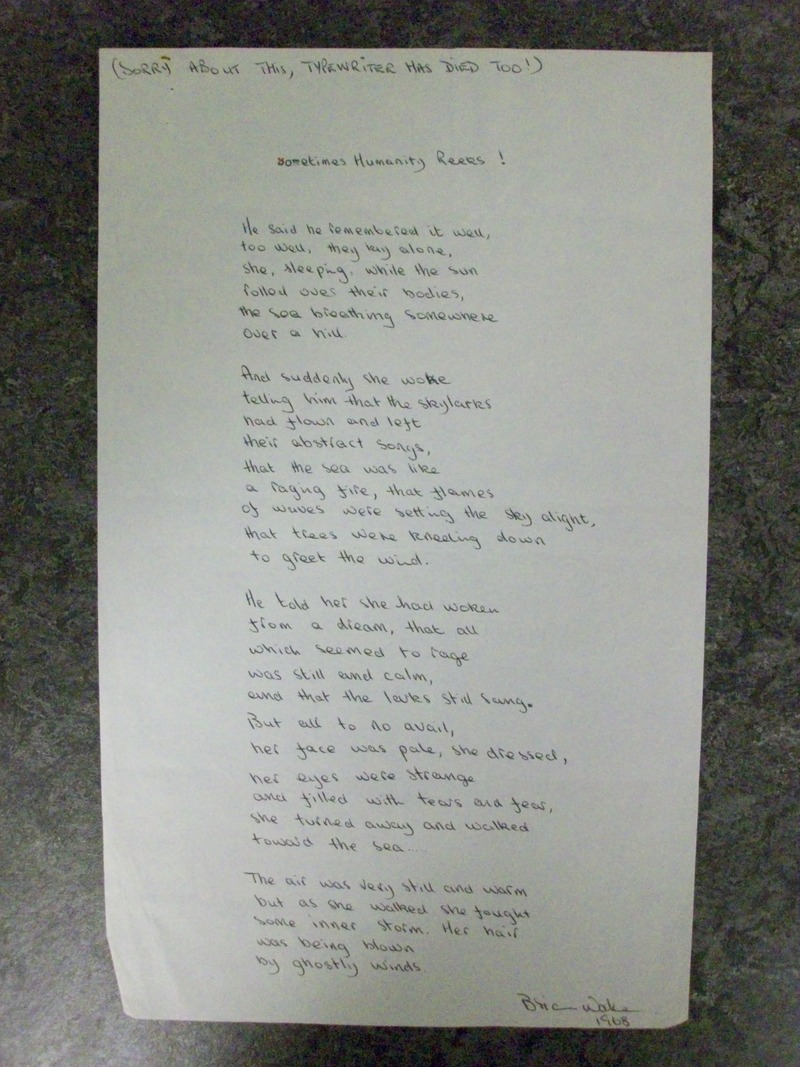 (SORRY ABOUT THIS, TYPEWRITER HAS DIED TOO!)
Sometimes Humanity Reeks !
He said he remembered it well,
too well, they lay alone,
she, sleeping, while the sun
rolled over their bodies,
the sea breathing somewhere
over a hill.
And suddenly she woke
telling him that the skylarks
had flown and left
their abstract songs,
that the sea was like
a raging fire, that flames
of waves were setting the sky alight,
that trees were kneeling down
to greet the wind.
He told her she had woken
from a dream, that all
which seemed to rage
was still and calm,
and that the larks still sang.
But all to no avail,
her face was pale, she dressed,
her eyes were strange
and filled with tears and fear,
she turned away and walked
toward the sea.....
The air was very still and warm
but as she walked she fought
some inner storm. Her hair
was being blown
by ghostly winds.
Brian Wake
1968